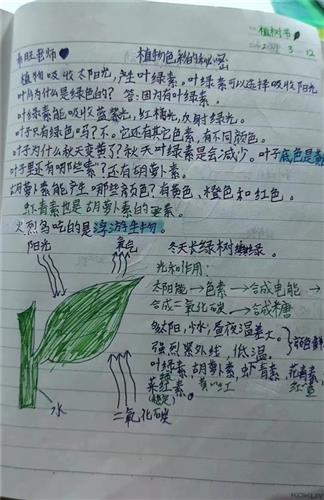 植树节
3 12
老师
植物色彩的秘密
植物吸收太阳光,产生叶绿素。叶绿素可以选择吸收阳光
叶片为什么是绿色的?答:因为有叶绿素。
叶绿素能吸收蓝紫光,红橙光,反射绿光。
叶子只有绿色吗?不。它还有其它色素,有不同颜色。
叶子为什么秋天变黄了?秋天叶绿素是会减少。叶子底色是黄
叶子里还有哪些素?还有胡萝卜素。
胡萝卜素能产哪些颜色?有黄色、橙色和红色。
虾青素也是胡萝卜素的
火烈鸟吃的是浮游生物。
阳光 氧气 冬天长绿树
光和作用:
太阳能→色素→合成电能→
合成二氧化碳→合成糖
太阳,少水,昼夜温差大。
强烈紫外线,低温。
叶绿素 胡萝卜素,虾青素,花青素
黄 红
水
二氧化碳